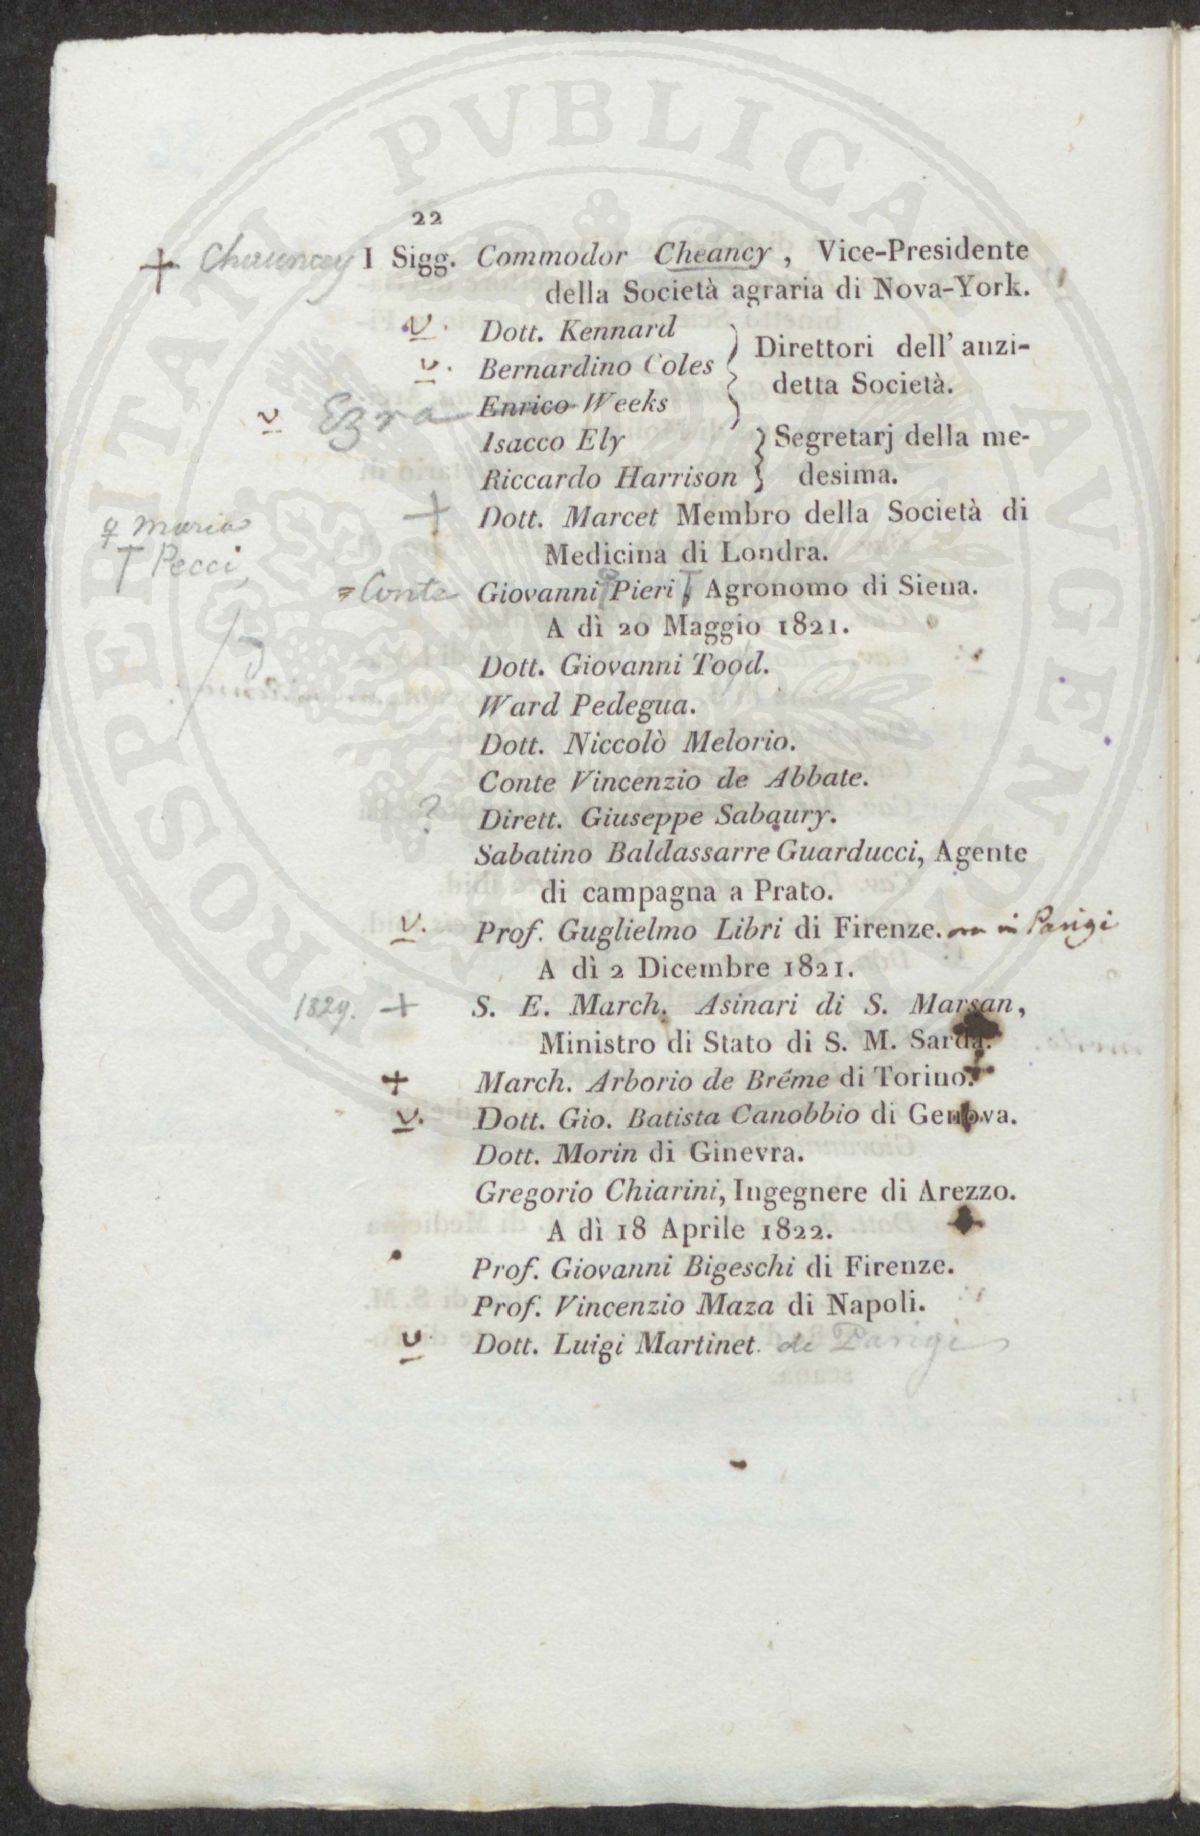 22
+ Chauncey I Sigg. Commodor Cheancy, Vice-Presidente
della Società agraria di Nova-York.
v. Dott. Kennard
v. Bernardino Coles } Direttori dell' anzi-
detta Società.
v Ezra Enrico Weeks
Isacco Ely } Segretarj della me-
Riccardo Harrison } desima.
+ Dott. Marcet Membro della Società di
Medicina di Londra.
♀ Maria
T Pecci,
= Conte Giovanni ♀ Pieri T, Agronomo di Siena.
A dì 20 Maggio 1821.
Dott. Giovanni Tood.
Ward Pedegua.
Dott. Niccolò Melorio.
Conte Vincenzio de Abbate.
? Dirett. Giuseppe Sabaury.
Sabatino Baldassarre Guarducci, Agente
di campagna a Prato.
v. Prof. Guglielmo Libri di Firenze. ora in Parigi
A dì 2 Dicembre 1821.
1829. + S. E. March. Asinari di S. Marsan,
Ministro di Stato di S. M. Sarda.
+ March. Arborio de Brême di Torino.
v. Dott. Gio. Batista Canobbio di Genova.
Dott. Morin di Ginevra.
Gregorio Chiarini, Ingegnere di Arezzo.
A dì 18 Aprile 1822.
Prof. Giovanni Bigeschi di Firenze.
Prof. Vincenzio Maza di Napoli.
v Dott. Luigi Martinet. de Parigi
PROSPERITATI PVBLICAE AVGENDAE